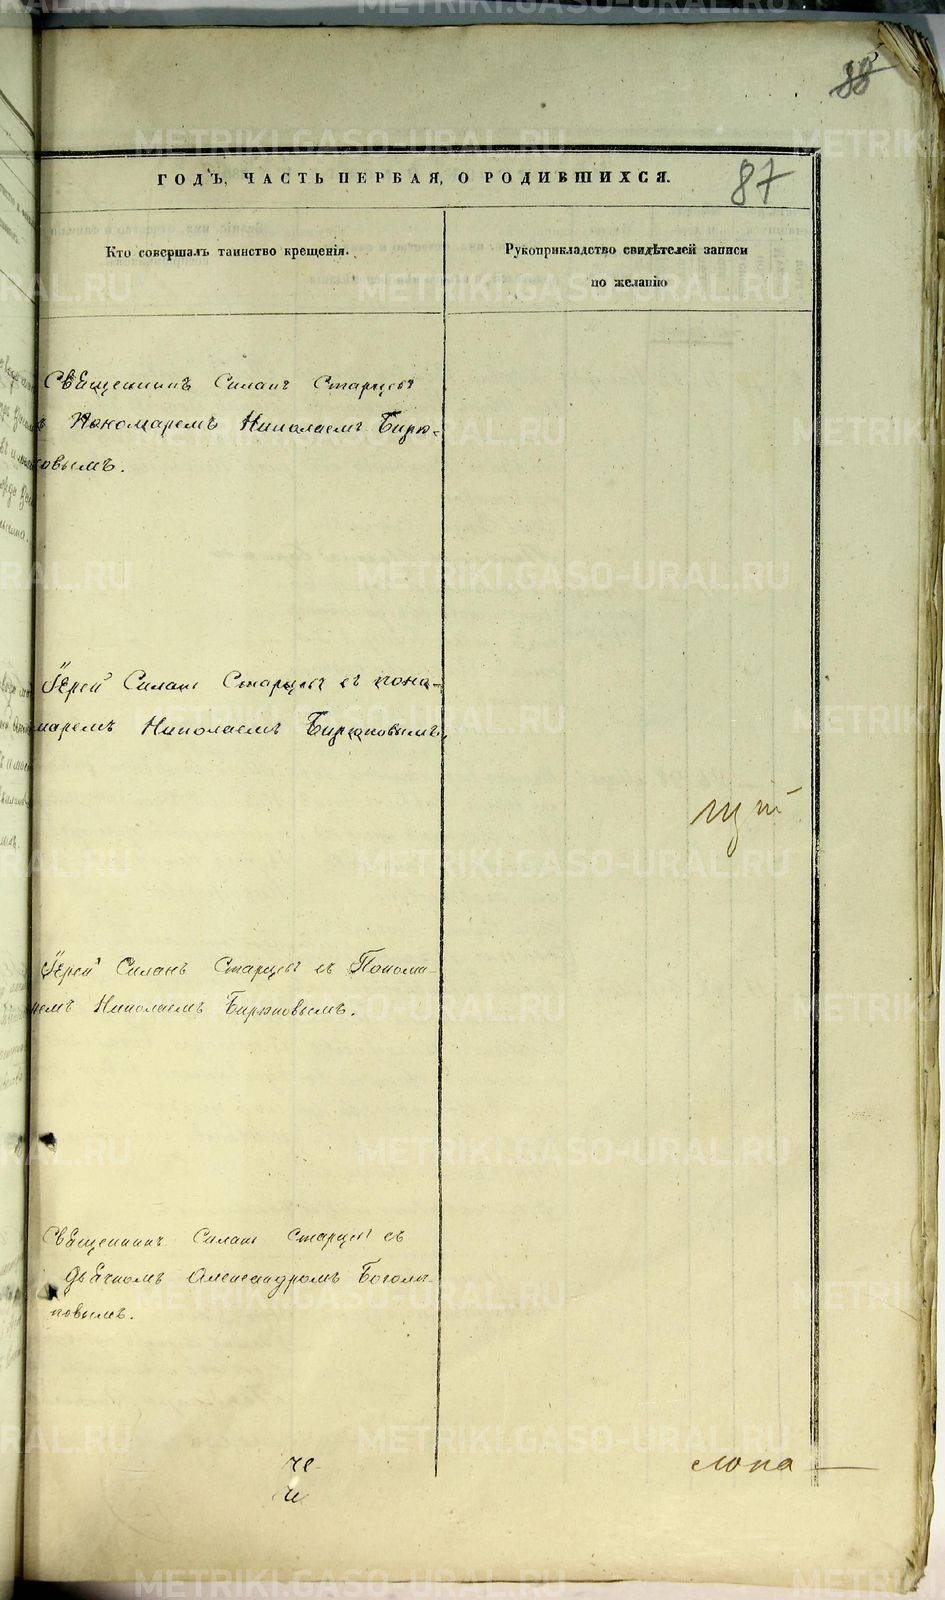 88
87
ГОДЪ, ЧАСТЬ ПЕРВАЯ, О РОДИВШИХСЯ.
Кто совершалъ таинство крещенія.
Рукоприкладство свидѣтелей записи
по желанію
Священникъ Силанъ Старцевъ
Пономаремъ Николаемъ Бирю-
ковымъ.
Іерей Силанъ Старцевъ съ поно-
маремъ Николаемъ Бирюковымъ.
Іерей Силанъ Старцевъ съ Понома-
ремъ Николаемъ Бирюковымъ.
Священникъ Силанъ Старцевъ съ
дьячкомъ Александромъ Боголю-
повымъ.
METRIKI.GASO-URAL.RU